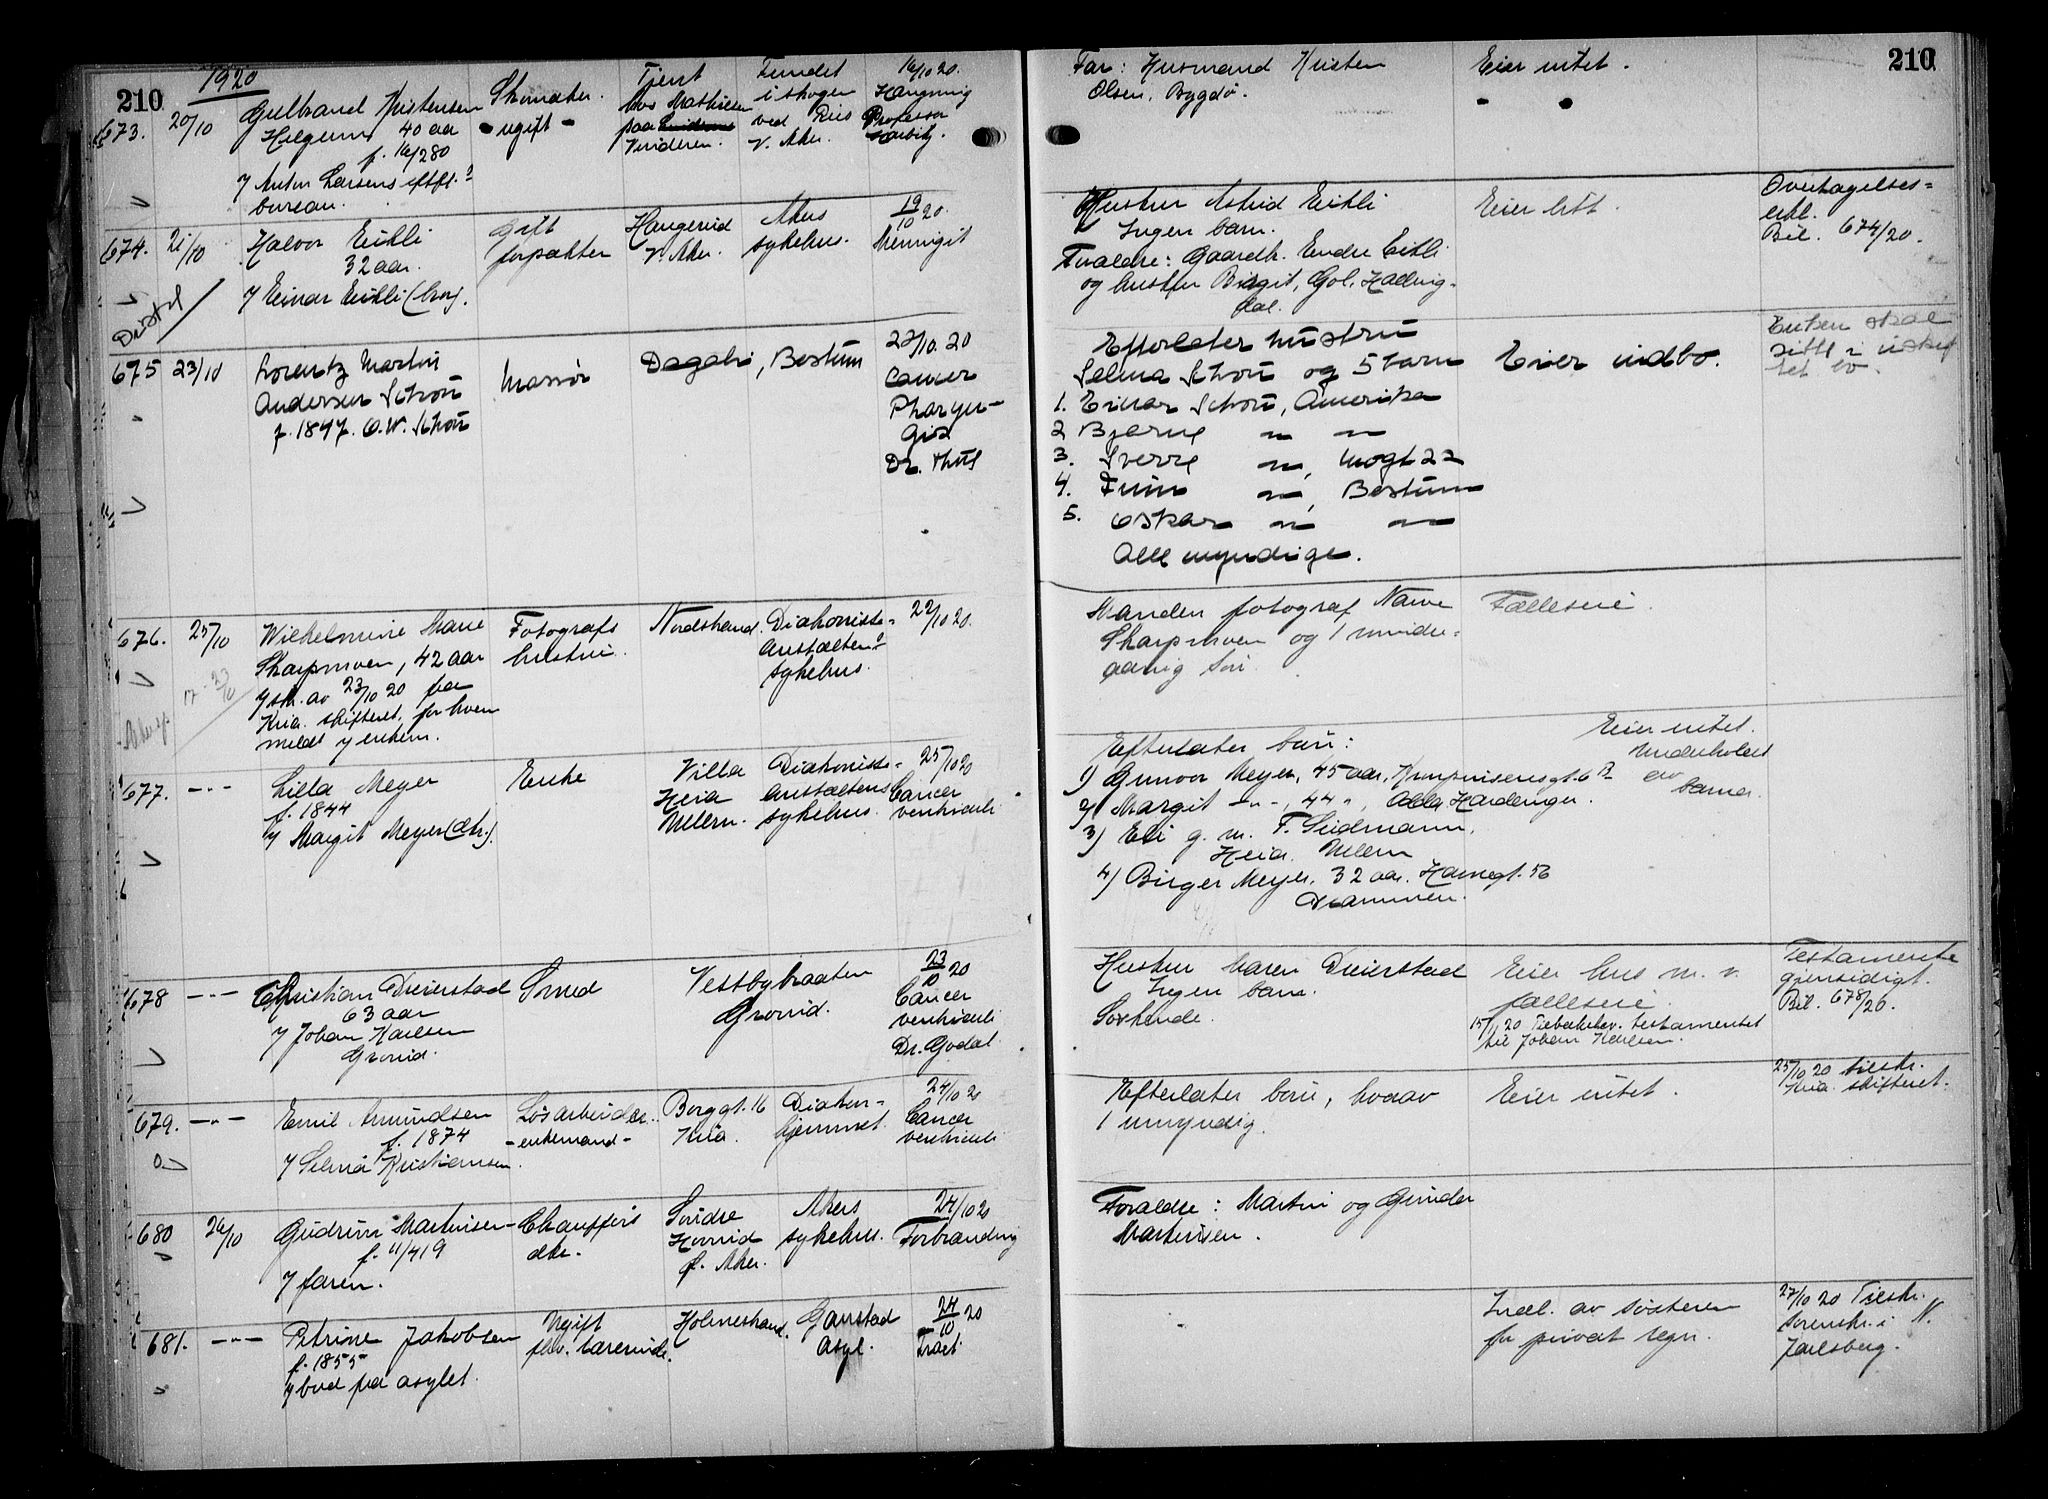 210
1920
673. 20/10 Gulbrand Kristensen Skomaker. Tjent Fundet 16/10 20.
Helgerud 40 aar ugift hos Mathisen i skogen Hængning
f. 16/2 80 paa Vinderen. ved Riis Professor
V. Aker. Harbitz.
7 Anton Larsens eftf.
bureau.
Far: Husmand Kristen Eier intet.
Olsen, Bygdø.
210
674. 21/10 Halvor Eikli gift Haugerud Akers 19/10 20.
32 aar. forpakter V. Aker. sykehus. Meningit
7 Einar Eikli (bror).
Hustru Astrid Eikli Eier litt. Overtagelses=
Ingen barn. erkl.
Forældre: Gaardbr. Endre Eikli Bil. 674/20.
og hustru Birgit, Gol, Halling-
dal.
675 23/10 Lorentz Martin Massør Dagali, Bestum 22/10. 20
Andersen Schou Cancer
f. 1847. O.W. Schou Pharyn-
gis
Dr.
Efterlater hustru Enken skal
Selma Schou og 5 barn Eier indbo. sitte i uskif
1. Einar Schou, Amerika tet bo.
2 Bjarne " "
3. Sverre ", Mogt 22
4. Finn ", Bestum
5. Oskar " "
Alle myndige.
676. 25/10 Wilhelmine Marie Fotografs Nordstrand. Diakonisse= 22/10 20.
Skarpmoen, 42 aar hustru. anstaltens
7 skr. av 23/10 20 fra sykehus.
Kria. skifteret, for hvem
meldt 7 enkem.
Manden fotograf Narve Fælleseie.
Skarpmoen og 1 mindre=
aarig søn.
677. -"- Lilla Meyer Enke Villa Diakonisse= 25/10 20
f. 1844 Heia anstaltens Cancer
7 Margit Meyer (dtr.). Ullern. sykehus. ventriculi
Efterlater barn: Eier intet.
1) Gunvor Meyer, 45 aar, Kronprinsensgt. 6 B Underholdt
2) Margit -"-, 44 ", Adla Hardanger. av
3) Eli g. m. F. Sidmann, barna.
Heia. Ullern
4) Birger Meyer, 32 aar. Havnegt. 56
Drammen.
678 -"- Christian Dreierstad Smed Vestbybraaten 23/10 20
63 aar Grorud. Cancer
7 Johan Karlsen ventriculi
Grorud. Dr. Godal.
Hustru Maren Dreierstad Eier hus m. v. Testamente
Ingen barn. fælleseie. gjensidigt.
Søskende. 15/11 20 Tilbakelev. testamentet Bil. 678/20.
til Johan Karlsen.
679. -"- Emil Amundsen Løsarbeider. Borggt. 16 Diakon= 24/10 20
f. 1874 - enkemand - Kria. hjemmet. Cancer
7 Selma Kristiansen. ventriculi
Efterlater barn, hvorav Eier intet. 25/10 20 tilskr.
1 umyndig. Kria. skifteret.
680 26/10 Gudrun Martinsen Chaufførs Søndre Akers 24/10 20
f. 11/4 19 dtr. Hovind sykehus. Forbrænding
7 faren. Ø. Aker.
Forældre: Martin og Gunda
Martinsen.
681. -"- Petrine Jakobsen Ugift Holmestrand. Gaustad 24/10 20
f. 1855 fhv. lærerinde. Asyl.
7 bud fra asylet.
Indl. av søsteren 27/10 20 Tilskr.
for privat regn. Sorenskr. i N.
Jarlsberg.